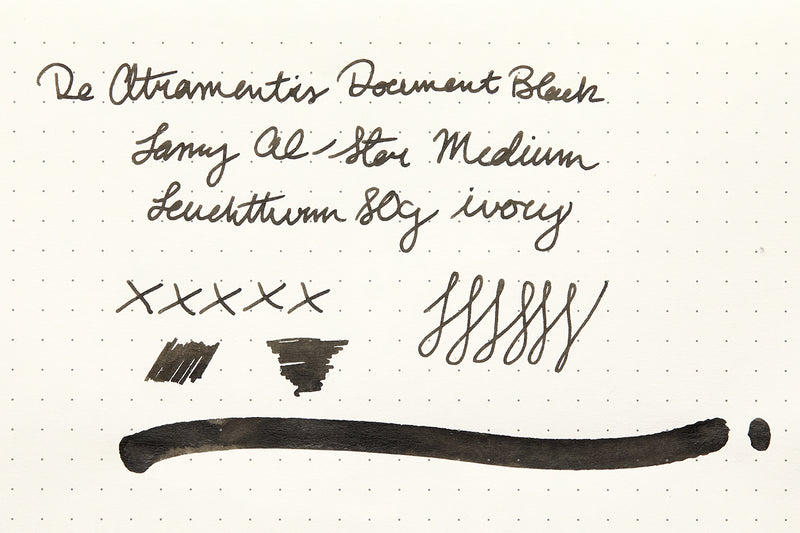 De Atramentis Document Black
Lamy Al-Star Medium
Leuchtturm 80g ivory
xxxxx